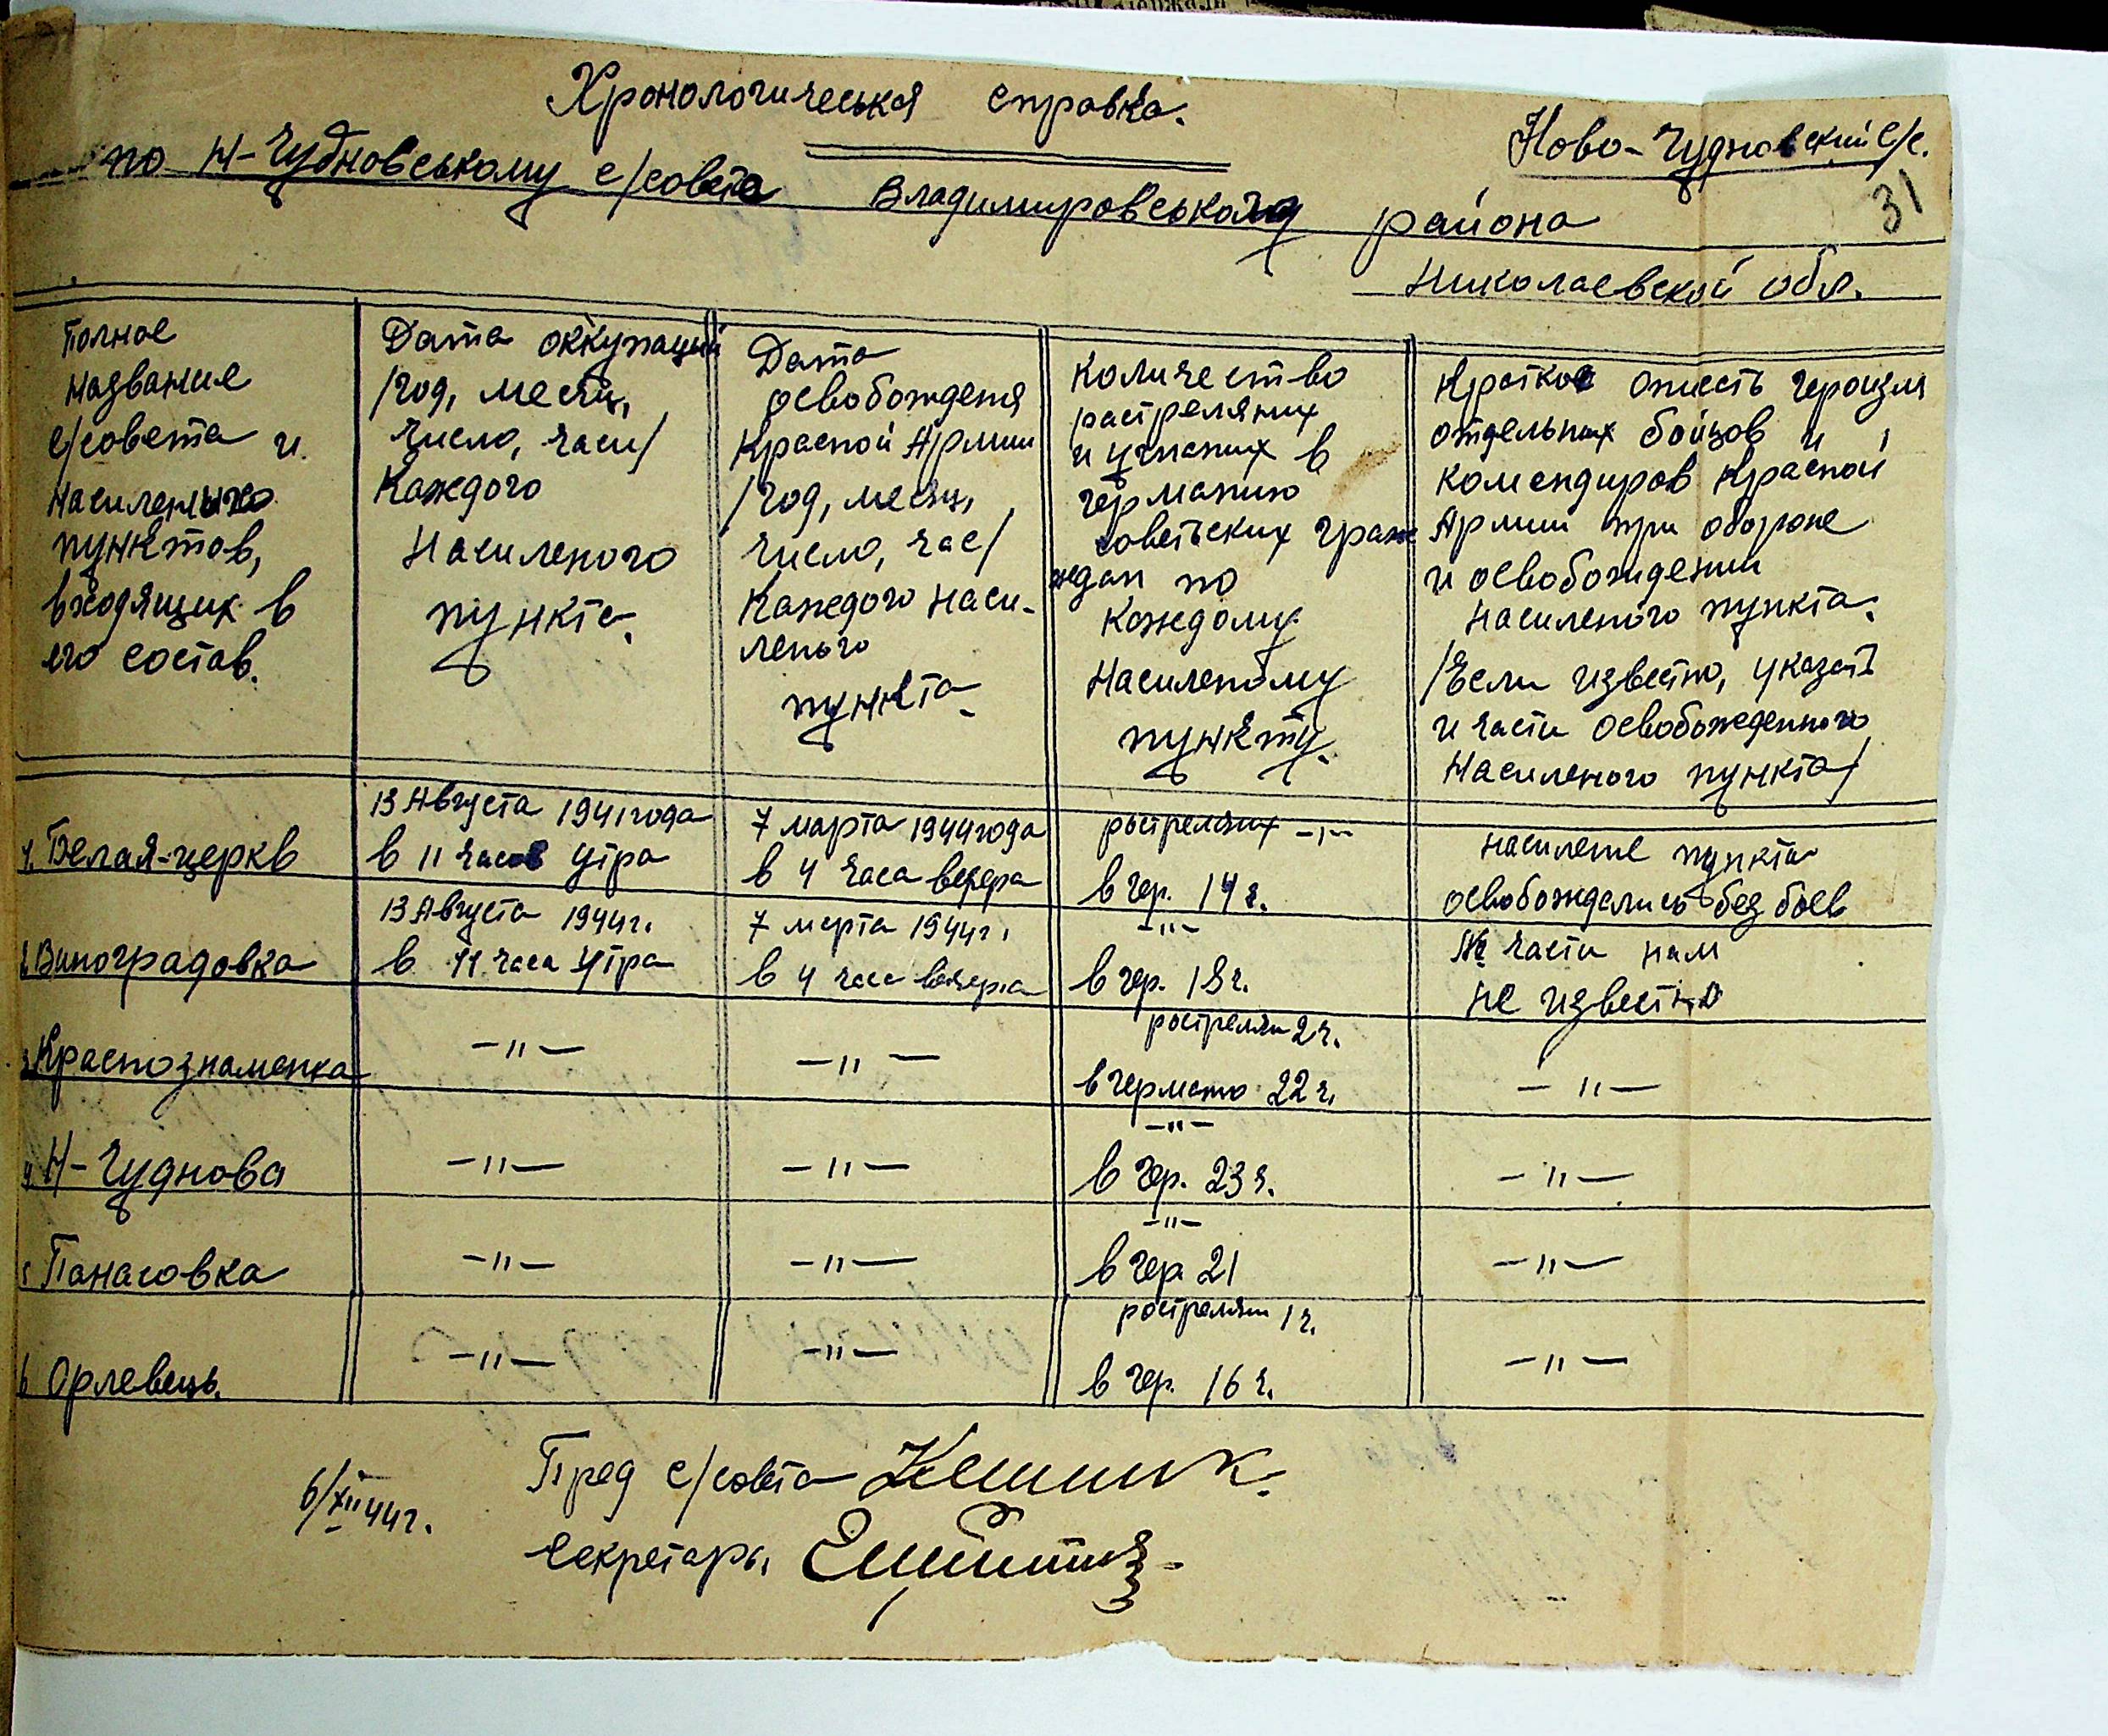 Хронологическая справка.
Ново-Чудновский с/с.
31
по Н-Чудновському с/совета Владимировського района
Николаевской обл.
Полное
название
с/совета и
насиленых
пунктов,
входящих в
его состав.
Дата оккупаций
/год, месяц,
число, часи/
Каждого
Насиленого
пункта.
Дата
освобожденя
Красной Армии
/год, месяц,
число, час/
Каждого наси-
леного
пункта.
Количество
растреляних
и угнаних в
германию
советских граж
ждан по
Каждому
Насиленому
пункту.
Краткое опесть героизм
отдельных бойцов и
комендиров Красной
Армии при обороне
и освобождении
насиленого пункта.
/Если известно, указать
и части освобожденного
Насиленого пункта/
1. Белая-церкв
13 Августа 1941 года
в 11 часов утра
7 марта 1944 года
в 4 часа вечера
рострелян -"-
в гер. 14 ч.
насиление пункта
освобождались без боев
2. Виноградовка
13 Августа 1944 г.
в 11 часа утра
7 марта 1944 г.
в 4 часа вечера
-"-
в гер. 18 ч.
№ части нам
не известно
3. Краснознаменка
-"-
-"-
рострелян 2 ч.
в германю 22 ч.
-"-
4. Н-Чуднова
-"-
-"-
-"-
в гер. 23 ч.
-"-
5 Панасовка
-"-
-"-
-"-
в гер. 21
-"-
6 Орлевець.
-"-
-"-
рострелян 1 ч.
в гер. 16 ч.
-"-
6/XII 44 г.
Пред с/совета
Секретарь